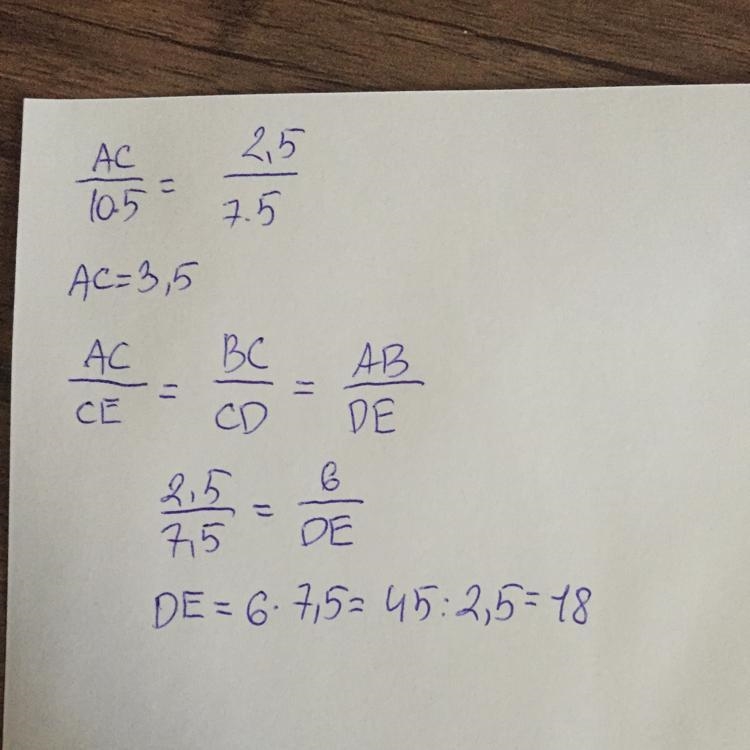 AC/10.5 = 2,5/7.5
AC=3,5
AC/CE = BC/CD = AB/DE
2,5/7,5 = 6/DE
DE = 6·7,5= 45:2,5=18